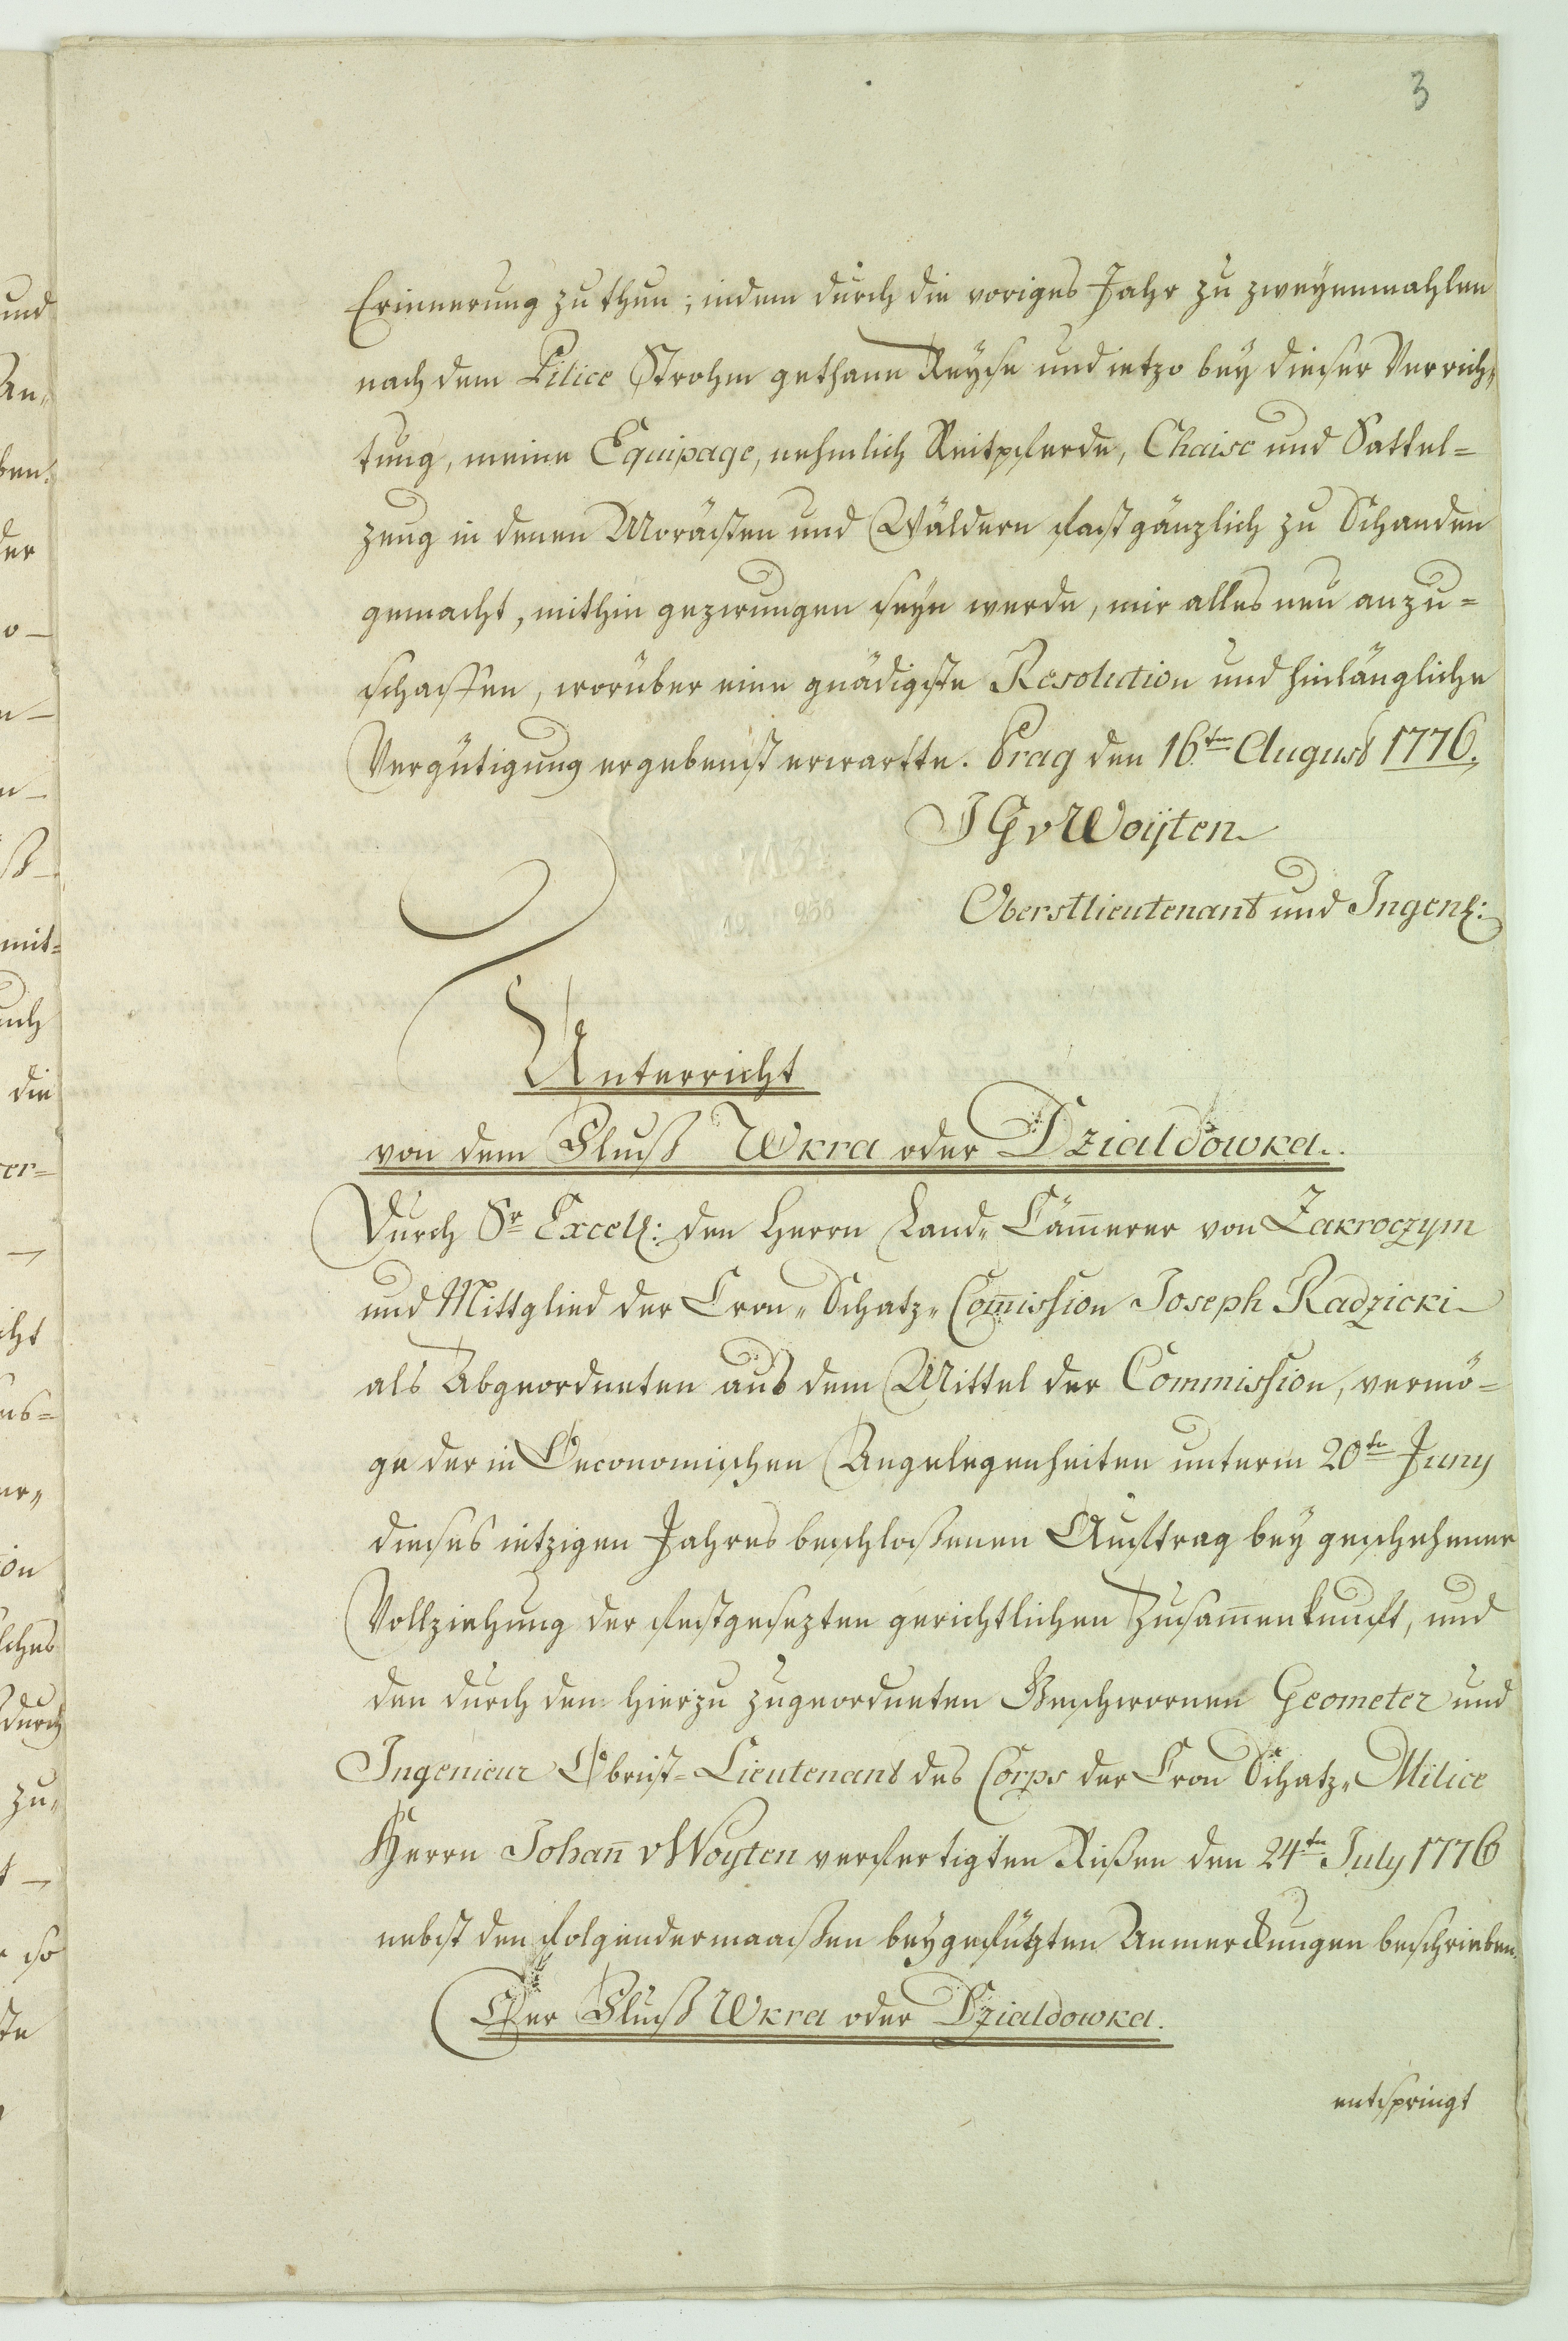 3
Erinnerung zu thun; indem durch die voriges Jahr zu zweyenmahlen
nach dem Pilice Strohm gethane Reyse und ietzo bey dieser Verrich„
tung, meine Equipage, nehmlich Reitpferde, Chaise und Sattel=
zeug in denen Morästen und Wäldern fast gänzlich zu Schanden
gemacht, mithin gezwungen seyn werde, mir alles neu anzu=
schaffen, worüber eine gnädigste Resolution und hinlängliche
Vergütigung ergebenst erwartte. Prag den 16ten August 1776.
J G v Woÿten
Oberstlieutenant und Ingen:
Unterricht
von dem Fluß Wkra oder Dzialdowka.
Durch Sr Excell: den Herrn Land„ Cam̄erer von Zakroczym
und Mittglied der Cron„ Schatz„ Com̄ission Joseph Radzicki
als Abgeordneten aus dem Mittel der Commission, vermö=
ge der in Oeconomischen Angelegenheiten unterm 20ten Juny
dieses ietzigen Jahres beschloßenen Auftrag bey geschehener
Vollziehung der festgesezten gerichtlichen Zusam̄enkunft, und
den durch den hierzu zugeordneten Geschwornen Geometer und
Ingenieur Obrist=Lieutenant des Corps der Cron Schatz„ Milice
Herrn Johan̄ v Woyten verfertigten Rißen den 24ten July 1776
nebst den folgendermaaßen beygefügten Anmerckungen beschrieben.
Der Fluß Wkra oder Dzialdowka.
entspringt